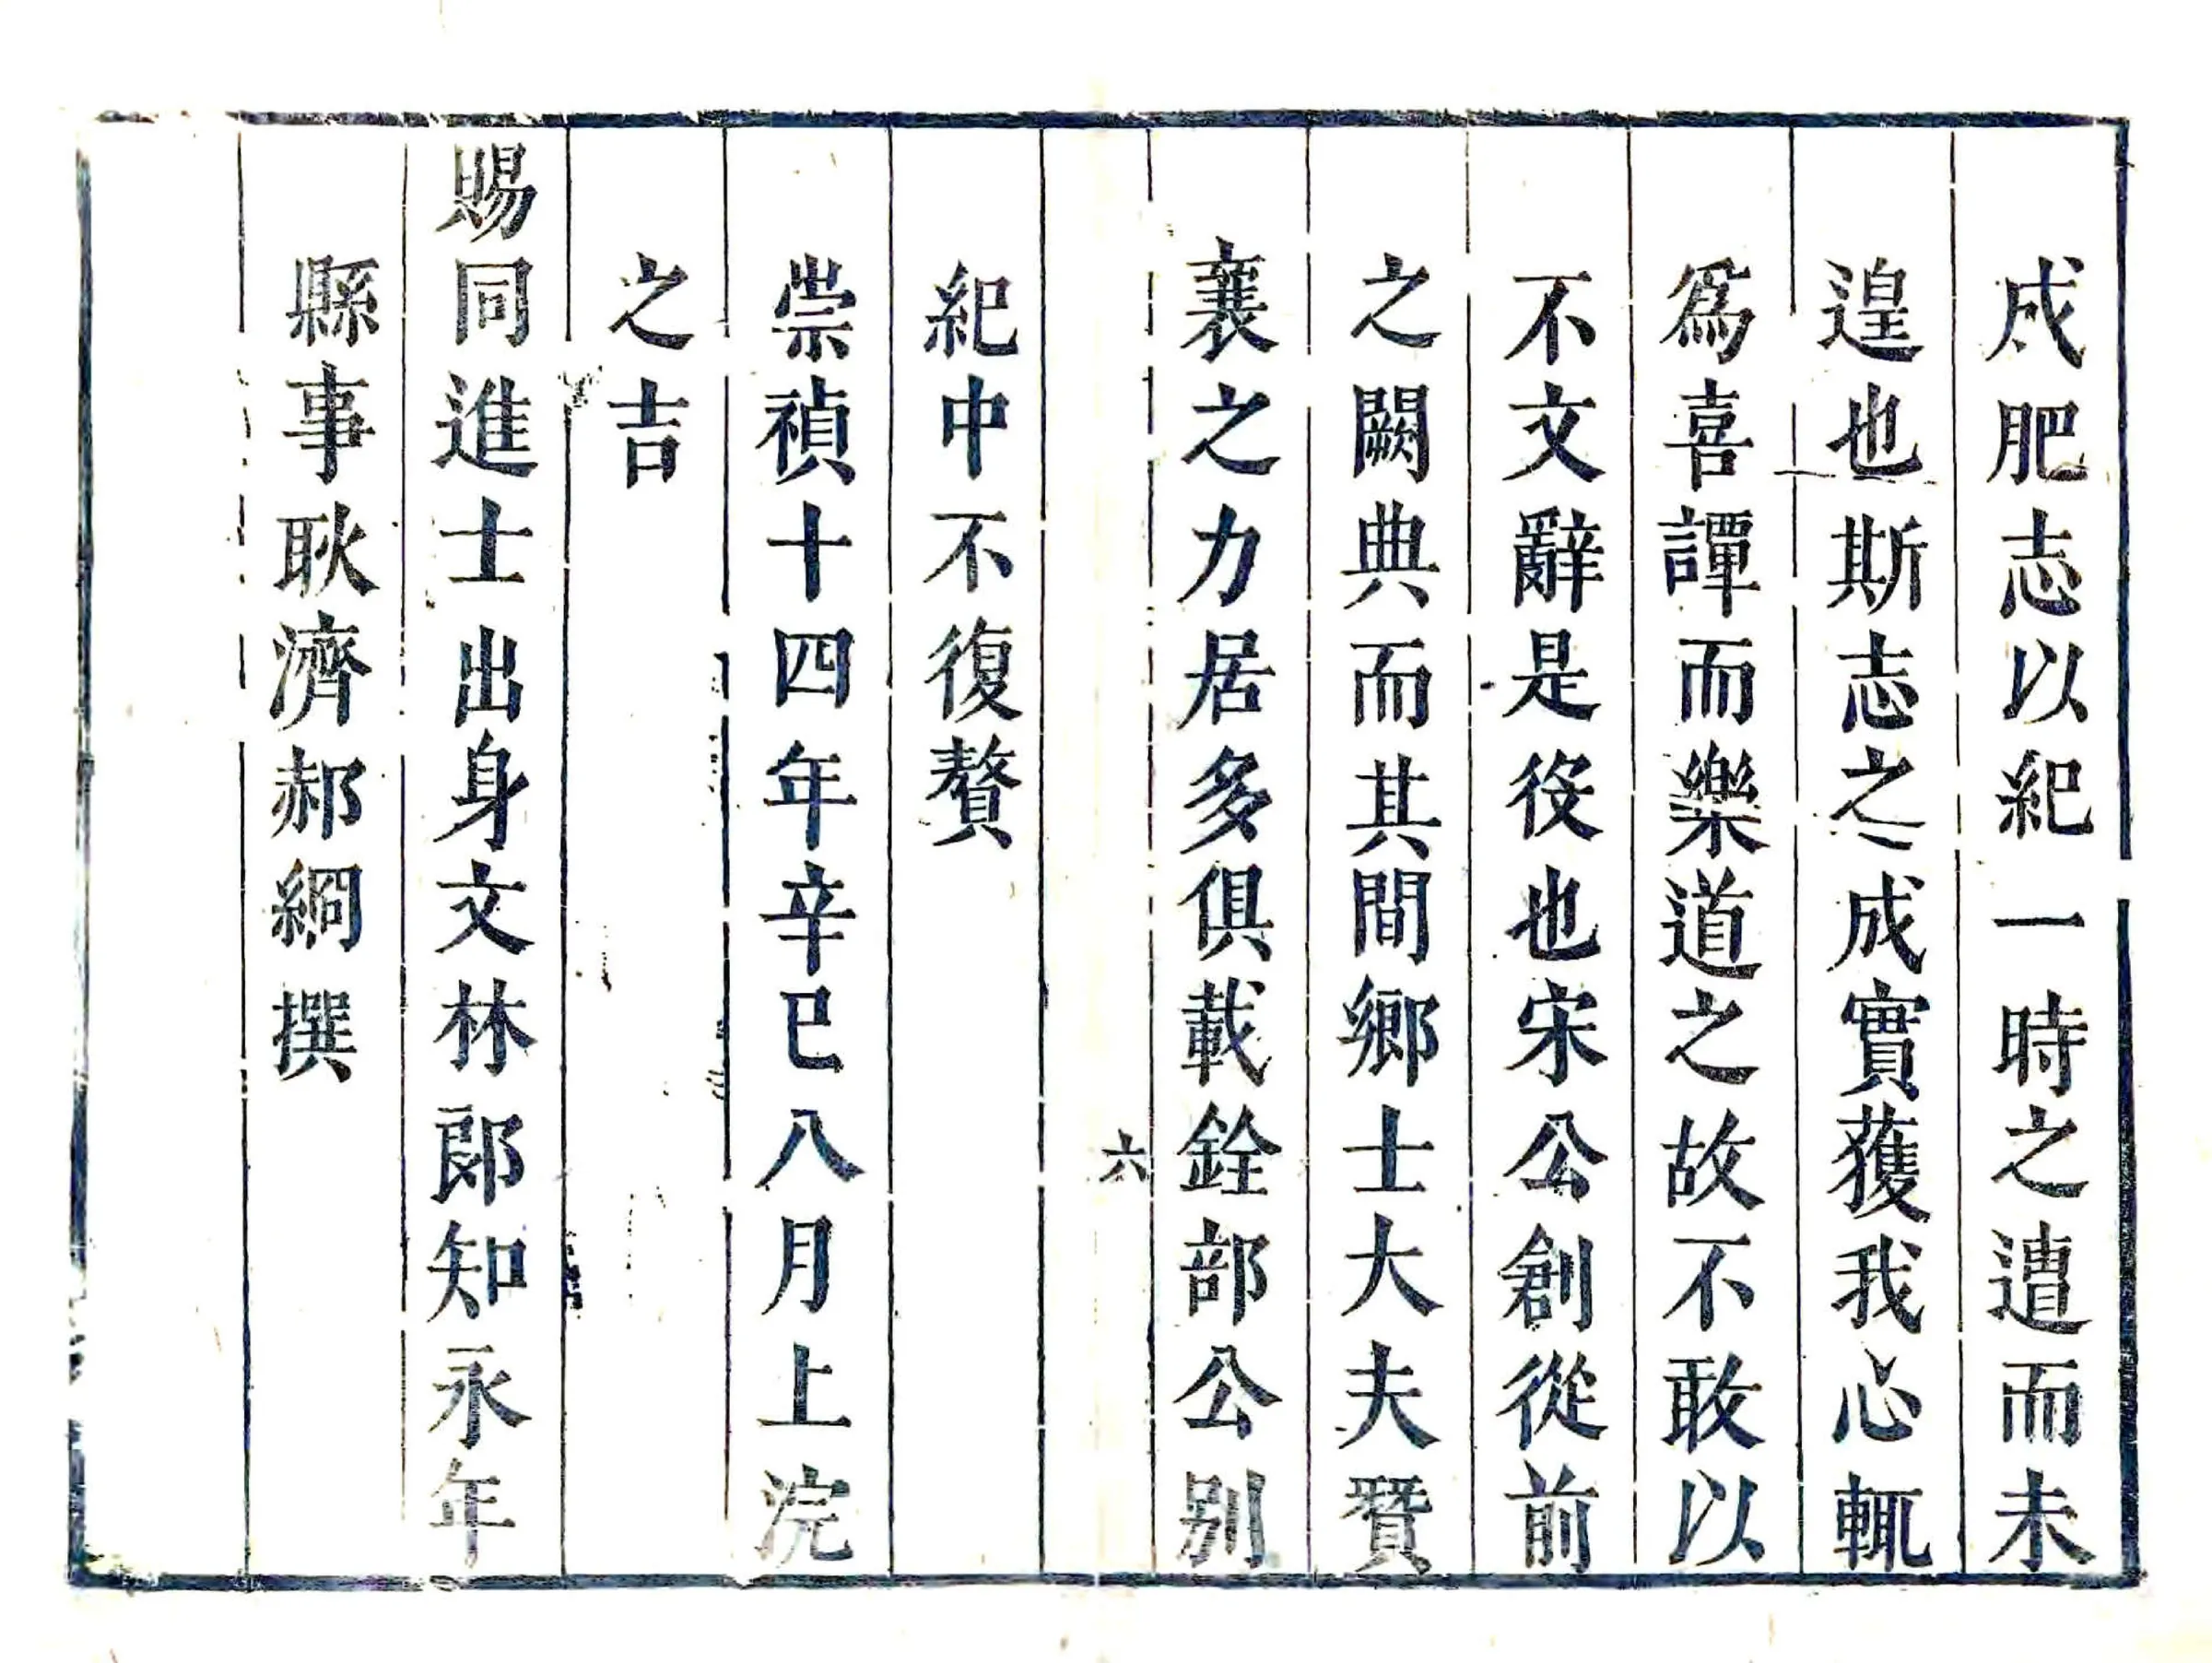 成肥志以紀一時之遭而未
遑也斯志之成實獲我心輒
為喜譚而樂道之故不敢以
不文辭是役也宋公創從前
之闕典而其間鄉士大夫贊
襄之力居多俱載銓部公別
六
紀中不復贅
崇禎十四年辛巳八月上浣
之吉
賜同進士出身文林郎知永年
縣事耿濟郝絅撰